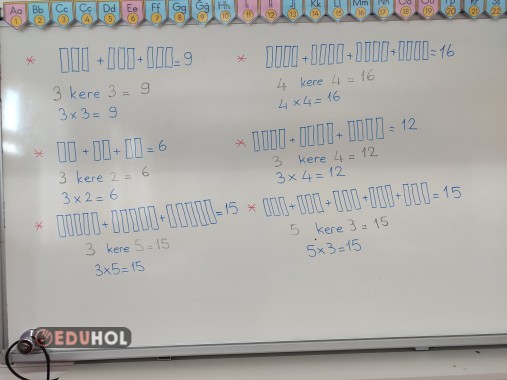 Aa Bb Cc Çç Dd Ee Ff Gg Ğğ Hh Iı İi Jj Kk Ll Mm Nn Oo
1 2 3 4 5 6 7 8 9 10 11 12 13 14 15 16 17 18 19 20 21 22
* + + = 9
3 kere 3 = 9
3 x 3 = 9
* + + + = 16
4 kere 4 = 16
4 x 4 = 16
* + + = 6
3 kere 2 = 6
3 x 2 = 6
* + + = 12
3 kere 4 = 12
3 x 4 = 12
* + + = 15
3 kere 5 = 15
3x5=15
* + + + + = 15
5 kere 3 = 15
5x3=15
EDUHOL